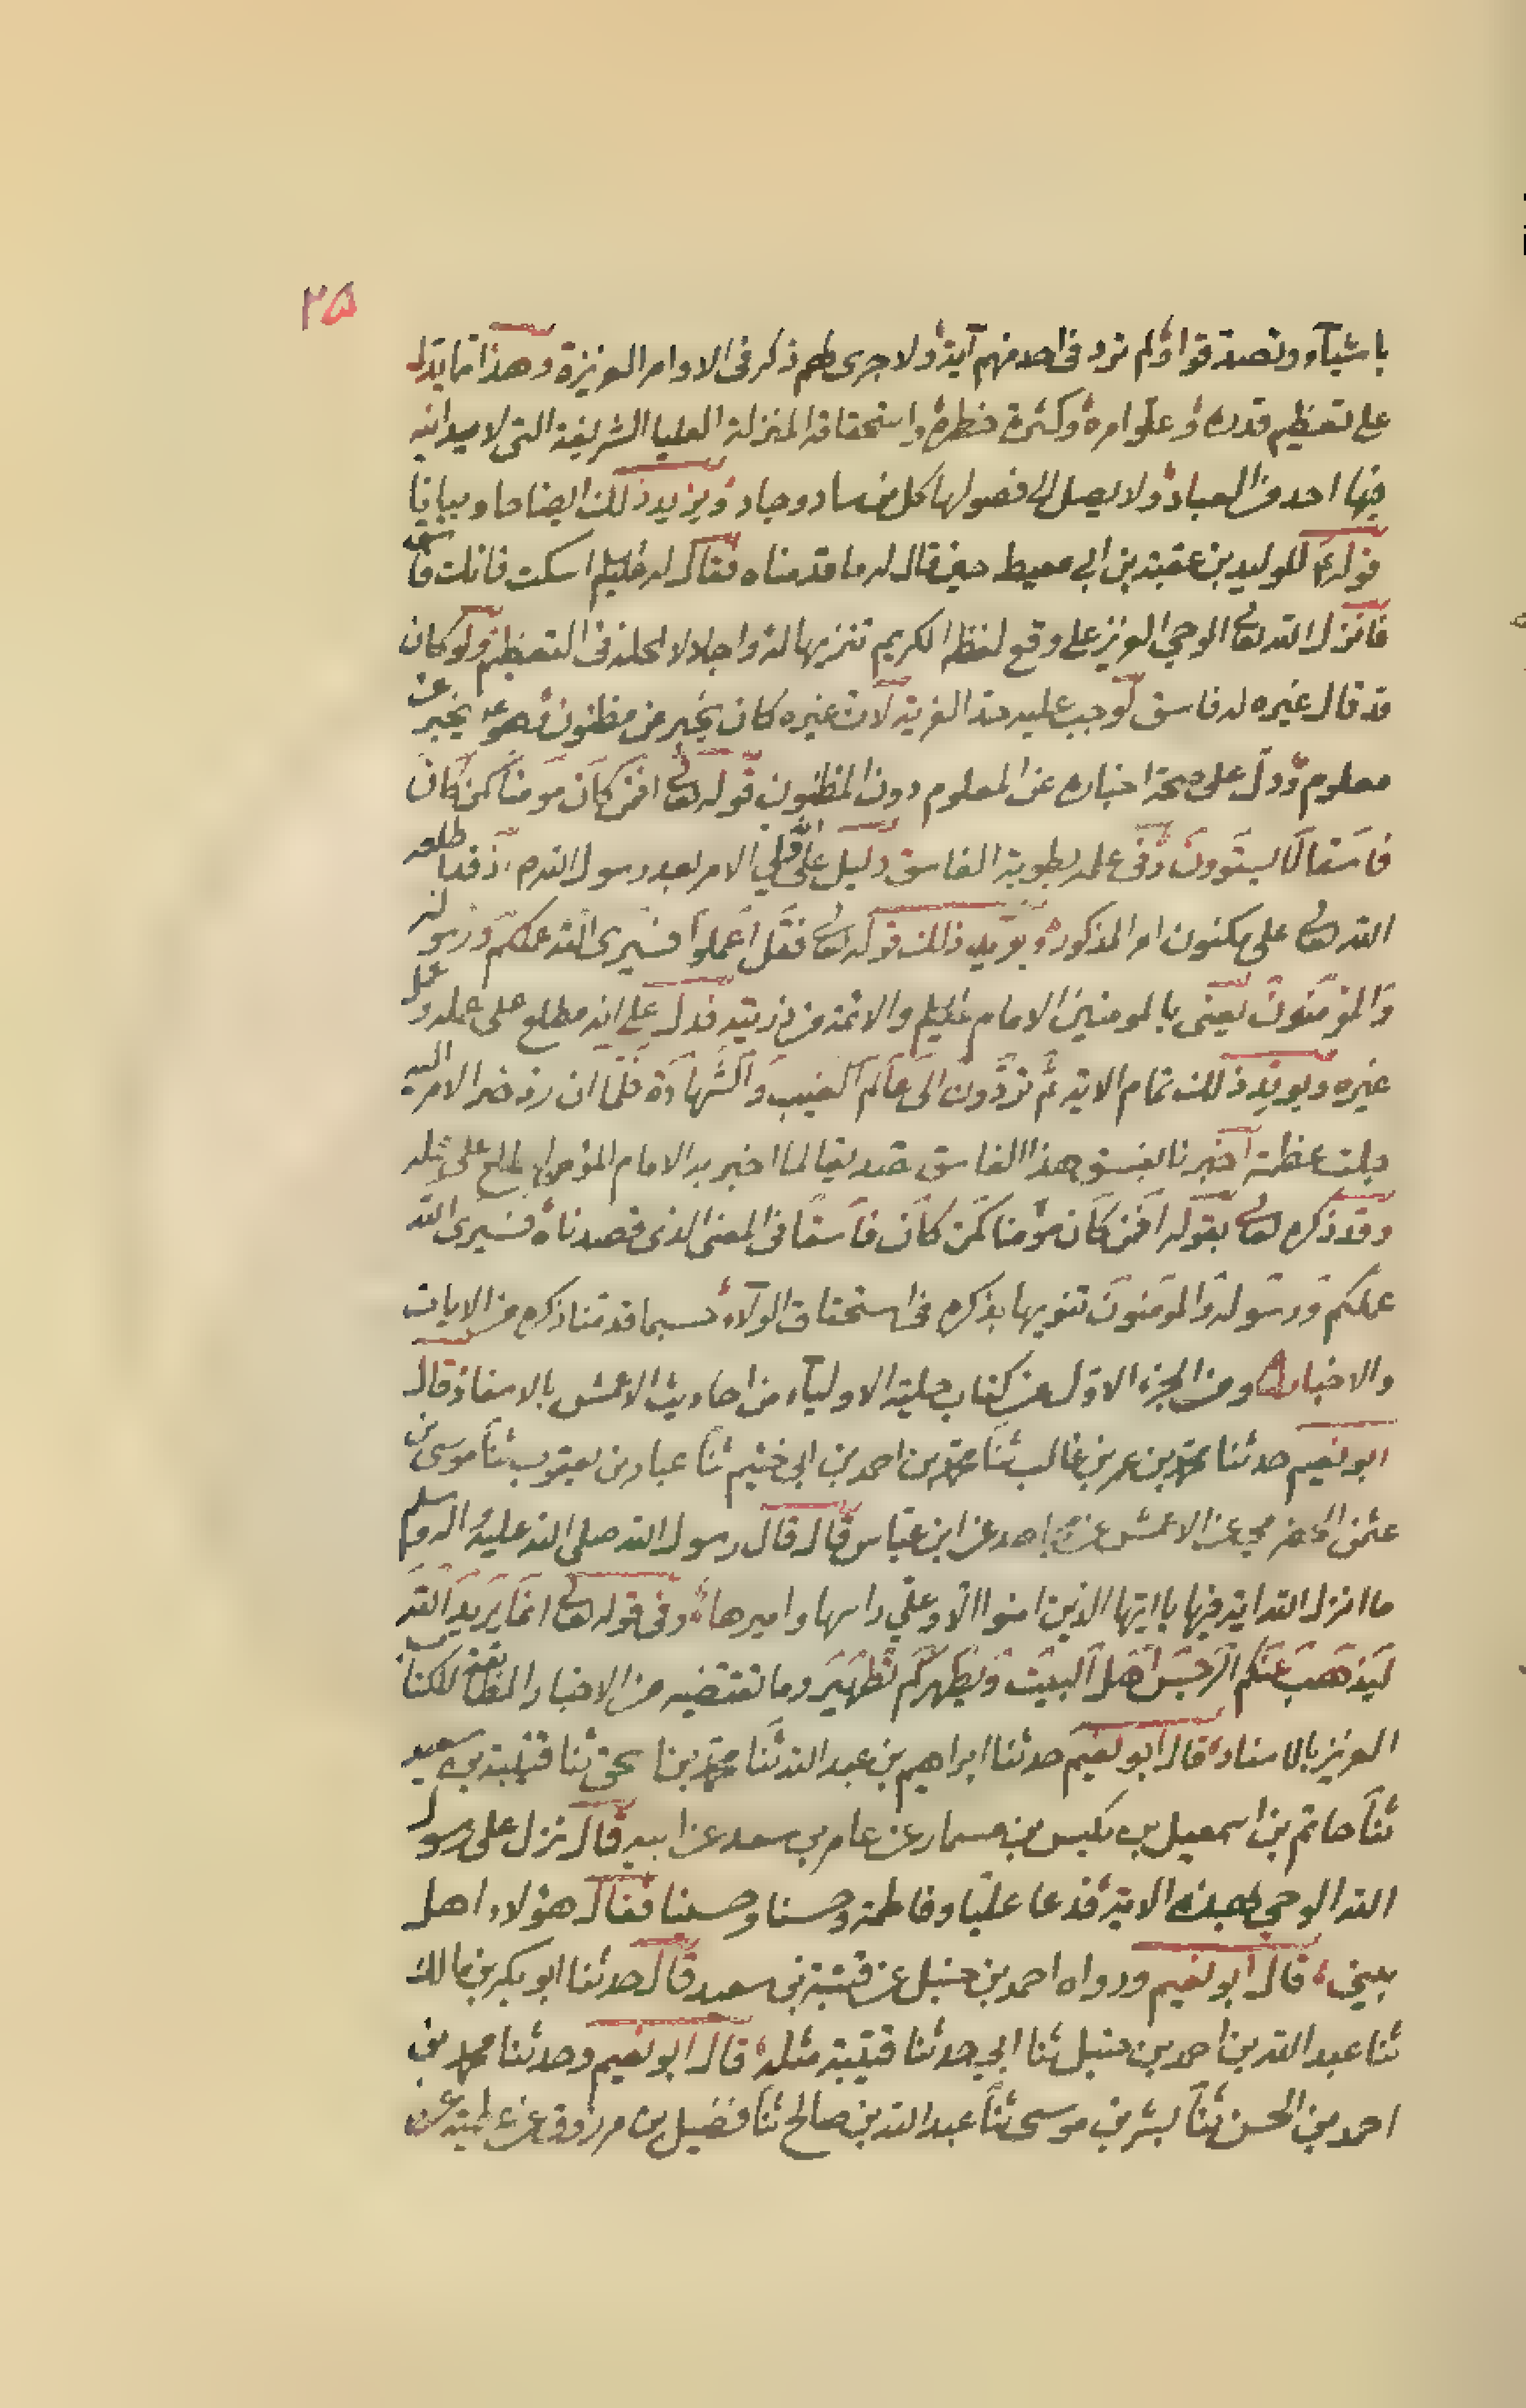 ۲۵
باشيآء وتصدقوا ولم ترد في احد منهم آية ولا جرى لهم ذكر في الاوامر العزيزة وهذا مما يدل
على تعظيم قدره وعلو امره وكثرة خطره واستحقاقه المنزلة العليا الشريفة التي لا يدانيه
فيها احد من العباد ولا يصل الى فصولها كل من ساد وجاد ويزيد ذلك ايضاحا وبيانا
قوله للوليد بن عقبة بن ابي معيط حين قال له ما قدمناه فقال له عليلم اسكت فانك فاسق
فانزل الله تعالى الوحي العزيز على وقع لفظه الكريم تنزيها له واجلالا لمحله في التعظيم ولو كان
قد قال غيره له فاسق لوجب عليه حد الفرية لان غيره كان يخبر عن مظنون وهو ع يخبر عن
معلوم ودل على صحة اخباره عن المعلوم دون المظنون قوله تعالى افمن كان مومنا كمن كان
فاسقا لا يستوون وفي علمه بطوية الفاسق دليل على الامر بعد رسول الله م اذ قد اطلعه
الله تعالى على مكنون امر المذكور ويويد ذلك قوله تعالى فقل اعملوا فسيرى الله عملكم ورسوله
والمؤمنون يعنى بالمومنين الامام عليلم والائمة من ذريته فدل على انه مطلع على عمله وعمل
غيره ويويد ذلك تمام الاية ثم تردون الى عالم الغيب والشهادة فلما ان رد خبر الامر اليه
جلت عظمته اخبرنا بفسق هذا الفاسق تصديقا لما اخبر به الامام المؤمن المطلع على مثله
وقد ذكره تعالى بقوله افمن كان مؤمنا كمن كان فاسقا في المعنى الذي قصدناه فسيرى الله
عملكم ورسوله والمؤمنون تنويها بذكره في استحقاق الولآء حسبما قدمنا ذكره من الايات
والاخبار ومن الجزء الاول من كتاب حلية الاوليآء من احاديث الاعمش بالاسناد قال
ابو نعيم حدثنا محمد بن عمر بن غالب ثنا محمد بن احمد بن ابي خثيم ثنا عباد بن يعقوب ثنا موسى بن
عثمن الحضرمي عن الاعمش عن مجاهد عن ابن عباس قال قال رسول الله صلى الله عليه واله وسلم
ما انزل الله اية فيها يا ايها الذين امنوا الا وعلي راسها واميرها وفي قوله تعالى انما يريد الله
ليذهب عنكم الرجس اهل البيت ويطهركم تطهير وما تقتضيه من الاخبار المطابقة للكتاب
العزيز بالاسناد قال ابو نعيم حدثنا ابراهيم بن عبد الله ثنا محمد بن اسحق ثنا قتيبة بن سعيد
ثنا حاتم بن اسمعيل بن بكير بن مسمار عن عامر بن سعد عن ابيه قال نزل على رسول
الله الوحي بهذه الاية فدعا عليا وفاطمة وحسنا وحسينا فقال هؤلاء اهل
بيتي قال ابو نعيم ورواه احمد بن حنبل عن قتيبة بن سعيد قال حدثنا ابو بكر بن مالك
ثنا عبد الله بن احمد بن حنبل ثنا ابي حدثنا قتيبة مثله قال ابو نعيم وحدثنا محمد بن
احمد بن الحسن ثنا بشر بن موسى ثنا عبد الله بن صالح ثنا فضيل بن مرزوق عن عطية عن